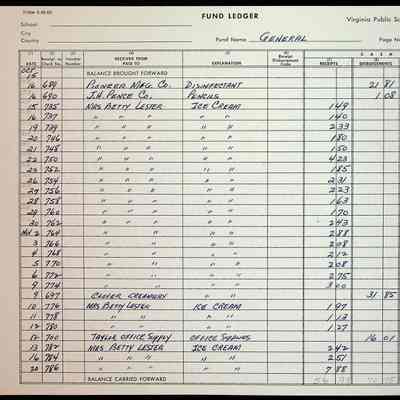 FUND LEDGER
School
City
County
Virginia Public Sc
Fund Name GENERAL
Page N
(1) (2) (3) (4) (5) (6) (7)
CASH
DATE Receipt or Check No. Voucher Number RECEIVED FROM PAID TO EXPLANATION Receipt Disbursement Code RECEIPTS DISBURSEMENTS
OCT
15 BALANCE BROUGHT FORWARD
16 689 PIONEER MFG. CO. DISINFECTANT 21 81
16 690 J.H. PENCE CO. PENCILS 1 08
15 735 MRS BETTY LESTER ICE CREAM 1 49
16 737 " " " " " 1 40
19 739 " " " " " 2 33
20 746 " " " " " 1 80
21 748 " " " " " 1 50
22 750 " " " " " 4 23
23 752 " " " " " 1 85
26 754 " " " " " 2 31
27 756 " " " " " 2 23
28 758 " " " " " 1 63
29 760 " " " " " 1 70
30 762 " " " " " 2 43
764 " " " " " 2 88
3 766 " " " " " 2 08
4 768 " " " " " 2 12
5 770 " " " " " 2 08
6 772 " " " " " 2 75
9 774 " " " " " 3 00
9 697 CLOVER CREAMERY 31 85
10 776 MRS BETTY LESTER ICE CREAM 1 97
11 778 " " " " 1 13
12 780 " " " " 1 27
12 700 TAYLOR OFFICE SUPPLY OFFICE SUPPLIES 16 01
13 782 MRS BETTY LESTER ICE CREAM 2 42
16 784 " " " " " 2 51
20 786 " " " " " 7 88
BALANCE CARRIED FORWARD